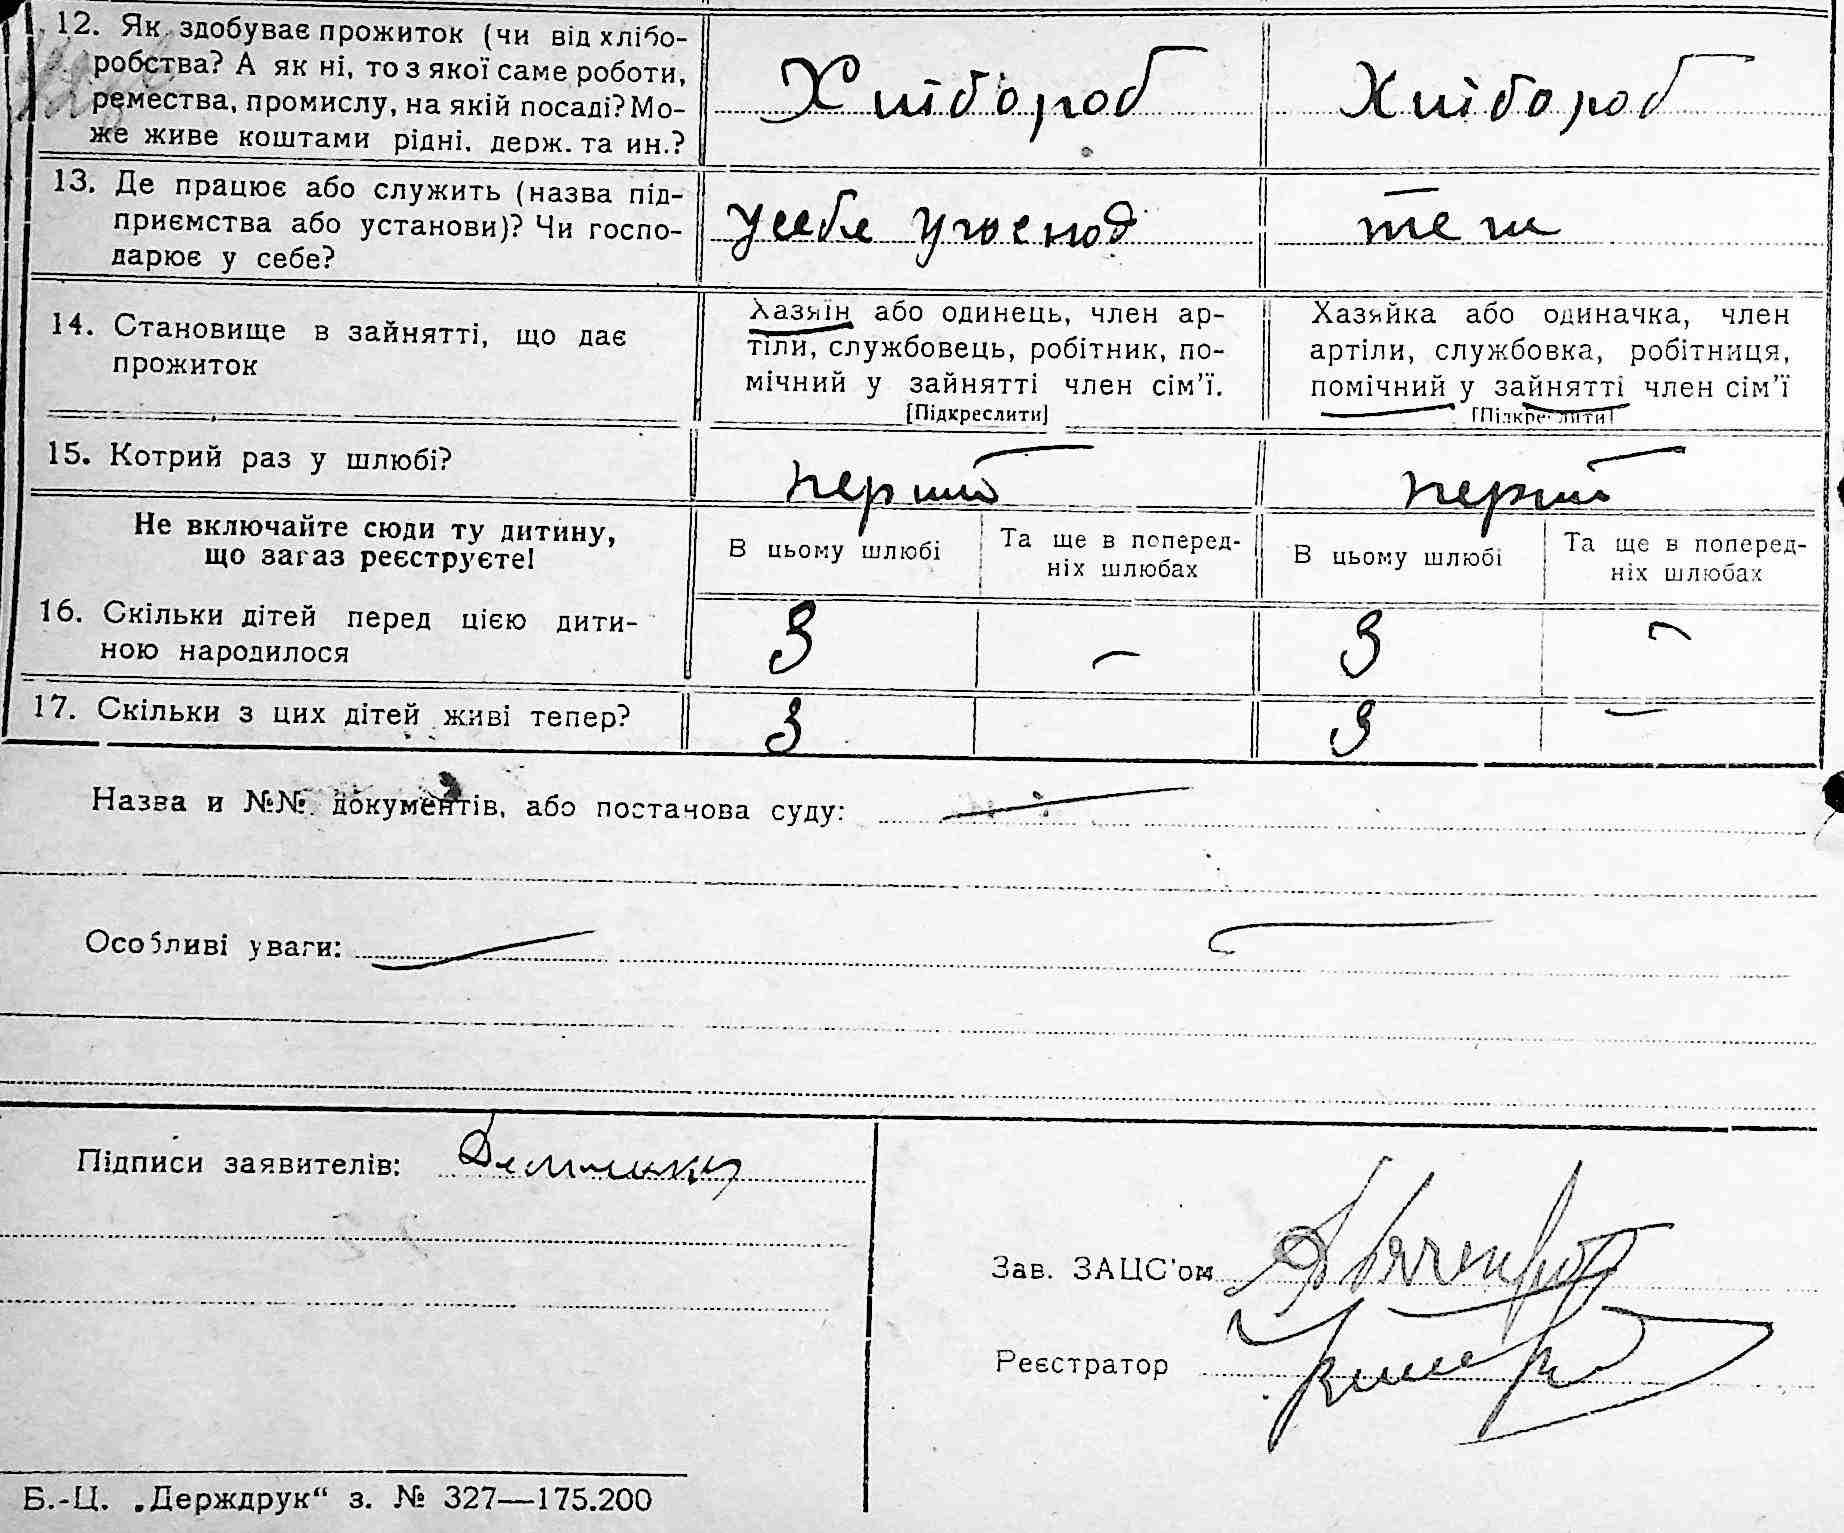 12. Як здобуває прожиток (чи від хлібо-
робства? А як ні, то з якої саме роботи,
ремества, промислу, на якій посаді? Мо-
же живе коштами рідні, держ. та ин.?
Хлібороб
Хлібороб
13. Де працює або служить (назва під-
приємства або установи)? Чи госпо-
дарює у себе?
у себе у господ
теж
14. Становище в зайнятті, що дає
прожиток
Хазяїн або одинець, член ар-
тіли, службовець, робітник, по-
мічний у зайнятті член сім'ї.
[Підкреслити]
Хазяйка або одиначка, член
артіли, службовка, робітниця,
помічний у зайнятті член сім'ї
[Підкреслити]
15. Котрий раз у шлюбі?
перший
перший
Не включайте сюди ту дитину,
що зараз реєструєте!
В цьому шлюбі
Та ще в поперед-
ніх шлюбах
В цьому шлюбі
Та ще в поперед-
ніх шлюбах
16. Скільки дітей перед цією дити-
ною народилося
3 — 3 —
17. Скільки з цих дітей живі тепер?
3 3 —
Назва и №№ документів, або постанова суду: —
Особливі уваги: —
Підписи заявителів:
Зав. ЗАЦС'ом
Реєстратор
Б.-Ц. „Держдрук“ з. № 327—175.200